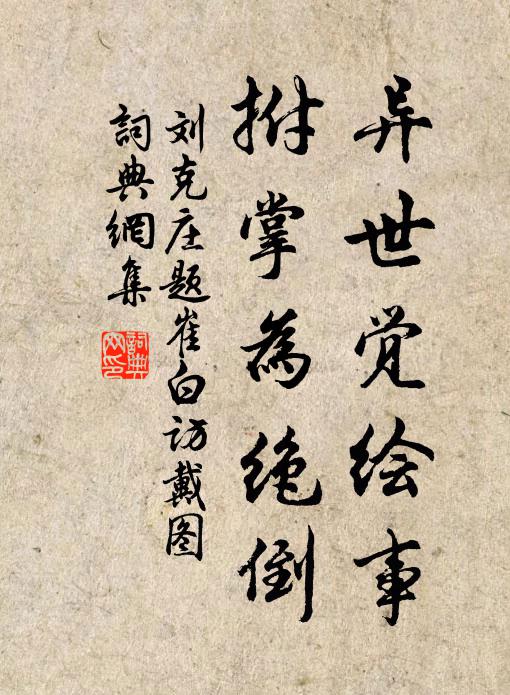 异世觉绘事
拊掌為绝倒
刘克庄题崔白访戴图
詞典網集
詞典网印